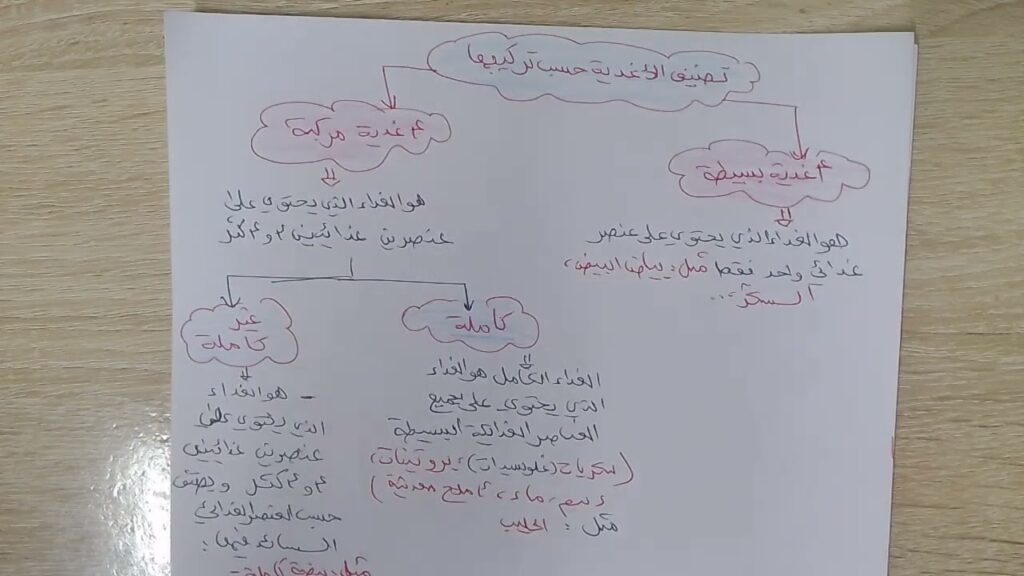 تصنيف الأغذية حسب تركيبها
أغذية بسيطة
هو الغذاء الذي يحتوي على عنصر
غذائي واحد فقط مثل: بياض البيض،
السكر...
أغذية مركبة
هو الغذاء الذي يحتوي على
عنصرين غذائيين أو أكثر
كاملة
الغذاء الكامل هو الغذاء
الذي يحتوي على جميع
العناصر الغذائية البسيطة
(سكريات (غلوسيدات)، بروتينات،
دسم، ماء، أملاح معدنية)
مثل: الحليب
غير
كاملة
- هو الغذاء
الذي يحتوي على
عنصرين غذائيين
أو أكثر ويصنف
حسب العنصر الغذائي
السائد فيها:
مثل: بيضة كاملة -